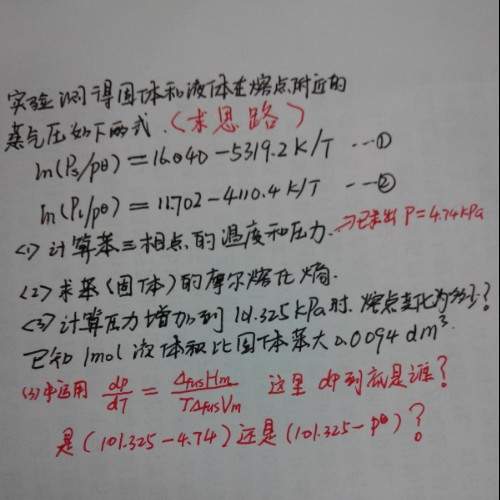 实验测得固体和液体在熔点附近的
蒸气压如下两式.(求思路)
ln(Ps/pθ)=16.040-5319.2K/T ---①
ln(Pl/pθ)=11.702-4110.4K/T ---②
<1>计算苯三相点的温度和压力.→已求出P=4.74kPa
<2>求苯(固体)的摩尔熔化熵.
<3>计算压力增加到101.325kPa时.熔点变化为多少?
已知1mol液体积比固体苯大0.0094dm³.
(3)中运用 dp/dT = ΔfusHm/TΔfusVm 这里dp到底是谁?
是(101.325-4.74)还是(101.325-pθ)?